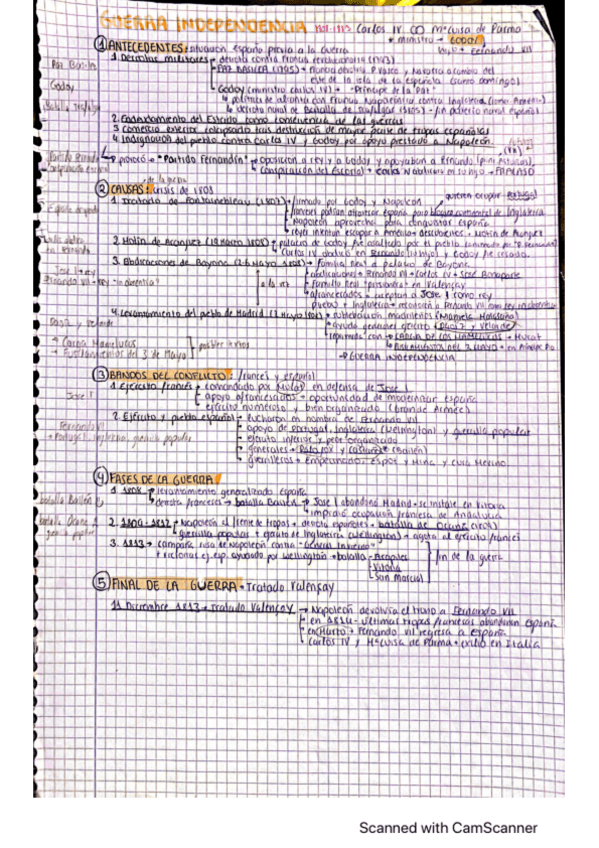 GUERRA INDEPENDENCIA Carlos IV ∞ Mª Luisa de Parma
ministro → Godoy hijo → Fernando VII
① ANTECEDENTES: situación España previa a la guerra
Paz Basilea
Godoy
Batalla Trafalgar
Partido Fernandino
1. Derrotas militares → derrota contra Francia revolucionaria (1793)
PAZ BASILEA (1795) → Francia devolvía P. Vasco y Navarra a cambio del
este de la isla de La Española (Santo Domingo)
Godoy (ministro Carlos IV) → "Príncipe de la Paz"
política de alianza con Francia Napoleónica contra Inglaterra
derrota naval de Batalla de Trafalgar (1805) → fin poderío naval español
2. Endeudamiento del Estado como consecuencia de las guerras
3. Comercio exterior colapsado tras destrucción de mayor parte de tropas españolas
4. Indignación del pueblo contra Carlos IV y Godoy por apoyo prestado a Napoleón
provocó → "Partido Fernandino" → oposición a rey y a Godoy y apoyaban a Fernando
Conspiración del Escorial → Carlos IV abdicara en su hijo → FRACASO
② CAUSAS: crisis de 1808
de la guerra
1. Tratado de Fontainebleau (1807) → firmado por Godoy y Napoleón
quieren ocupar Portugal
franceses podían atravesar España para bloqueo continental de Inglaterra
Napoleón aprovechó para conquistar España
reyes intentan escapar a América → descubierto → Motín de Aranjuez
2. Motín de Aranjuez (19 marzo 1808) → palacio de Godoy fue asaltado por el pueblo
Carlos IV abdicó en Fernando (su hijo) y Godoy fue cesado
3. Abdicaciones de Bayona → Familia Real a palacio de Bayona
José I → rey
abdicaciones → Fernando VII → Carlos IV → José Bonaparte
a la vez
Familia Real "prisionera" en Valençay
afrancesados → aceptan a José I como rey
4. Levantamiento del pueblo de Madrid (2 mayo 1808) → sublevación madrileños (Manuela Malasaña)
Daoiz y Velarde
ayuda generales ejército (Daoiz y Velarde)
Carga Mamelucos
Fusilamientos del 3 de Mayo
CARGA DE LOS MAMELUCOS → Murat
GUERRA INDEPENDENCIA
③ BANDOS DEL CONFLICTO: francés y español
José I
1. Ejército francés → comandado por Murat en defensa de José I
apoyo afrancesados → oportunidad de modernizar España
ejército numeroso y bien organizado (Grande Armée)
Fernando VII
2. Ejército y pueblo español → lucharon en nombre de Fernando VII
apoyo de Portugal, Inglaterra (Wellington) y guerrilla popular
ejército inferior y peor organizado
generales → Palafox y Castaños (Bailén)
guerrilleros → Empecinado, Espoz y Mina y Cura Merino
④ FASES DE LA GUERRA
batalla Bailén
1. 1808 → levantamiento generalizado España
derrota franceses → batalla Bailén → José I abandona Madrid → se instala en Vitoria
impidió ocupación francesa de Andalucía
batalla Ocaña
2. → Napoleón al frente de tropas → derrota españoles → batalla de Ocaña
guerrilla popular + ayuda de Inglaterra (Wellington) → agota al ejército francés
3. 1813 → campaña rusa de Napoleón contra "General Invierno"
victorias ej. esp. ayudado por Wellington → batalla → Arapiles
Vitoria
San Marcial
fin de la guerra
⑤ FINAL DE LA GUERRA → Tratado Valençay
11 Diciembre 1813 → Tratado Valençay → Napoleón devolvía el trono a Fernando VII
en 1814 → últimas tropas francesas abandonan España
en marzo → Fernando VII regresa a España
Carlos IV y Mª Luisa de Parma → exilio en Italia
Scanned with CamScanner